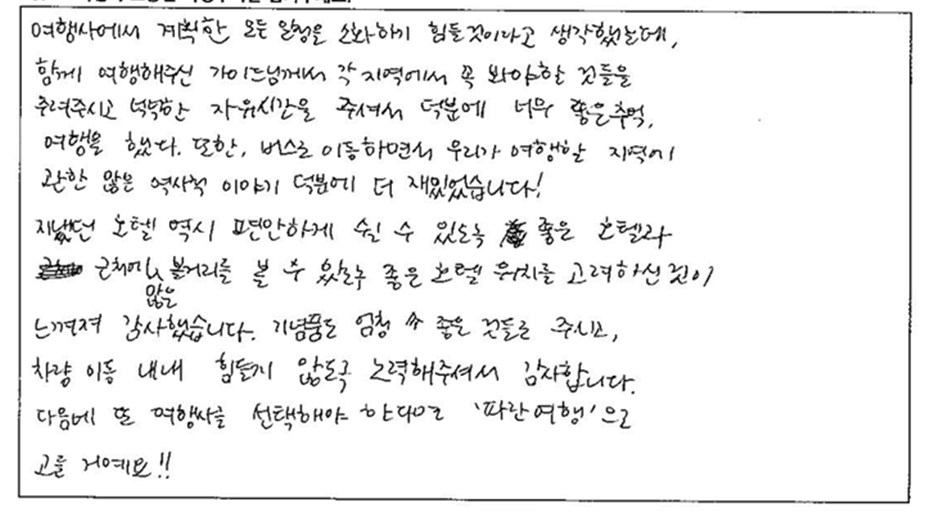 여행사에서 계획한 모든 일정을 소화하기 힘들것이라고 생각했는데,
함께 여행해주신 가이드님께서 각 지역에서 꼭 봐야한 것들을
추려주시고 넉넉한 자유시간을 주셔서 덕분에 너무 좋은추억,
여행을 했다. 또한, 버스로 이동하면서 우리가 여행할 지역에
관한 많은 역사적 이야기 덕분에 더 재밌었습니다!
지냈던 호텔 역시 편안하게 쉴 수 있도록 좋은 호텔과
근처에 많은 볼거리를 볼 수 있도록 좋은 호텔 위치를 고려하신 것이
느껴져 감사했습니다. 기념품도 엄청 좋은 것들로 주시고,
차량 이동 내내 힘들지 않도록 노력해주셔서 감사합니다.
다음에 또 여행사를 선택해야 한다면 '파란여행'으로
고를 거예요!!